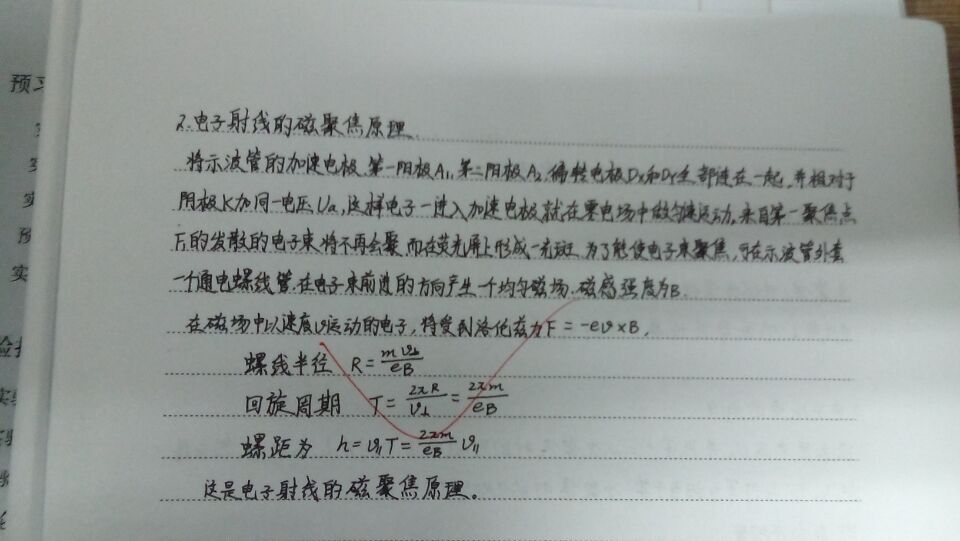 2.电子射线的磁聚焦原理.
将示波管的加速电极、第一阳极A₁,第二阳极A₂,偏转电极Dx和Dy全部连在一起,并相对于
阴极K加同一电压Ua,这样电子一进入加速电极就在零电场中做匀速运动,来自第一聚焦点
F₁的发散的电子束将不再会聚,而在荧光屏上形成一光斑.为了能使电子束聚焦,可在示波管外套
一个通电螺线管,在电子束前进的方向产生一个均匀磁场,磁感强度为B.
在磁场中以速度v运动的电子,将受到洛伦兹力F=-ev×B,
螺线半径 R=mv⊥/eB
回旋周期 T=2πR/v⊥=2πm/eB
螺距为 h=v∥T=2πm/eB v∥
这是电子射线的磁聚焦原理.
预习
实
实
实
预
实